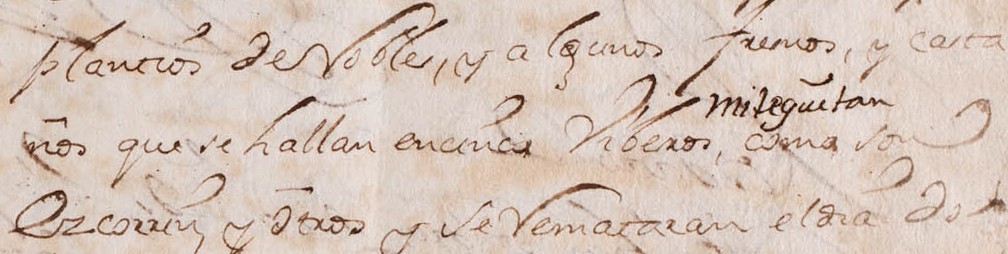 plantios de Roble, y algunos fremos, y casta
miteguetan
ños que se hallan en cinco Viberos, como son
Ezcorrin, y otros y se Remataran el dia do